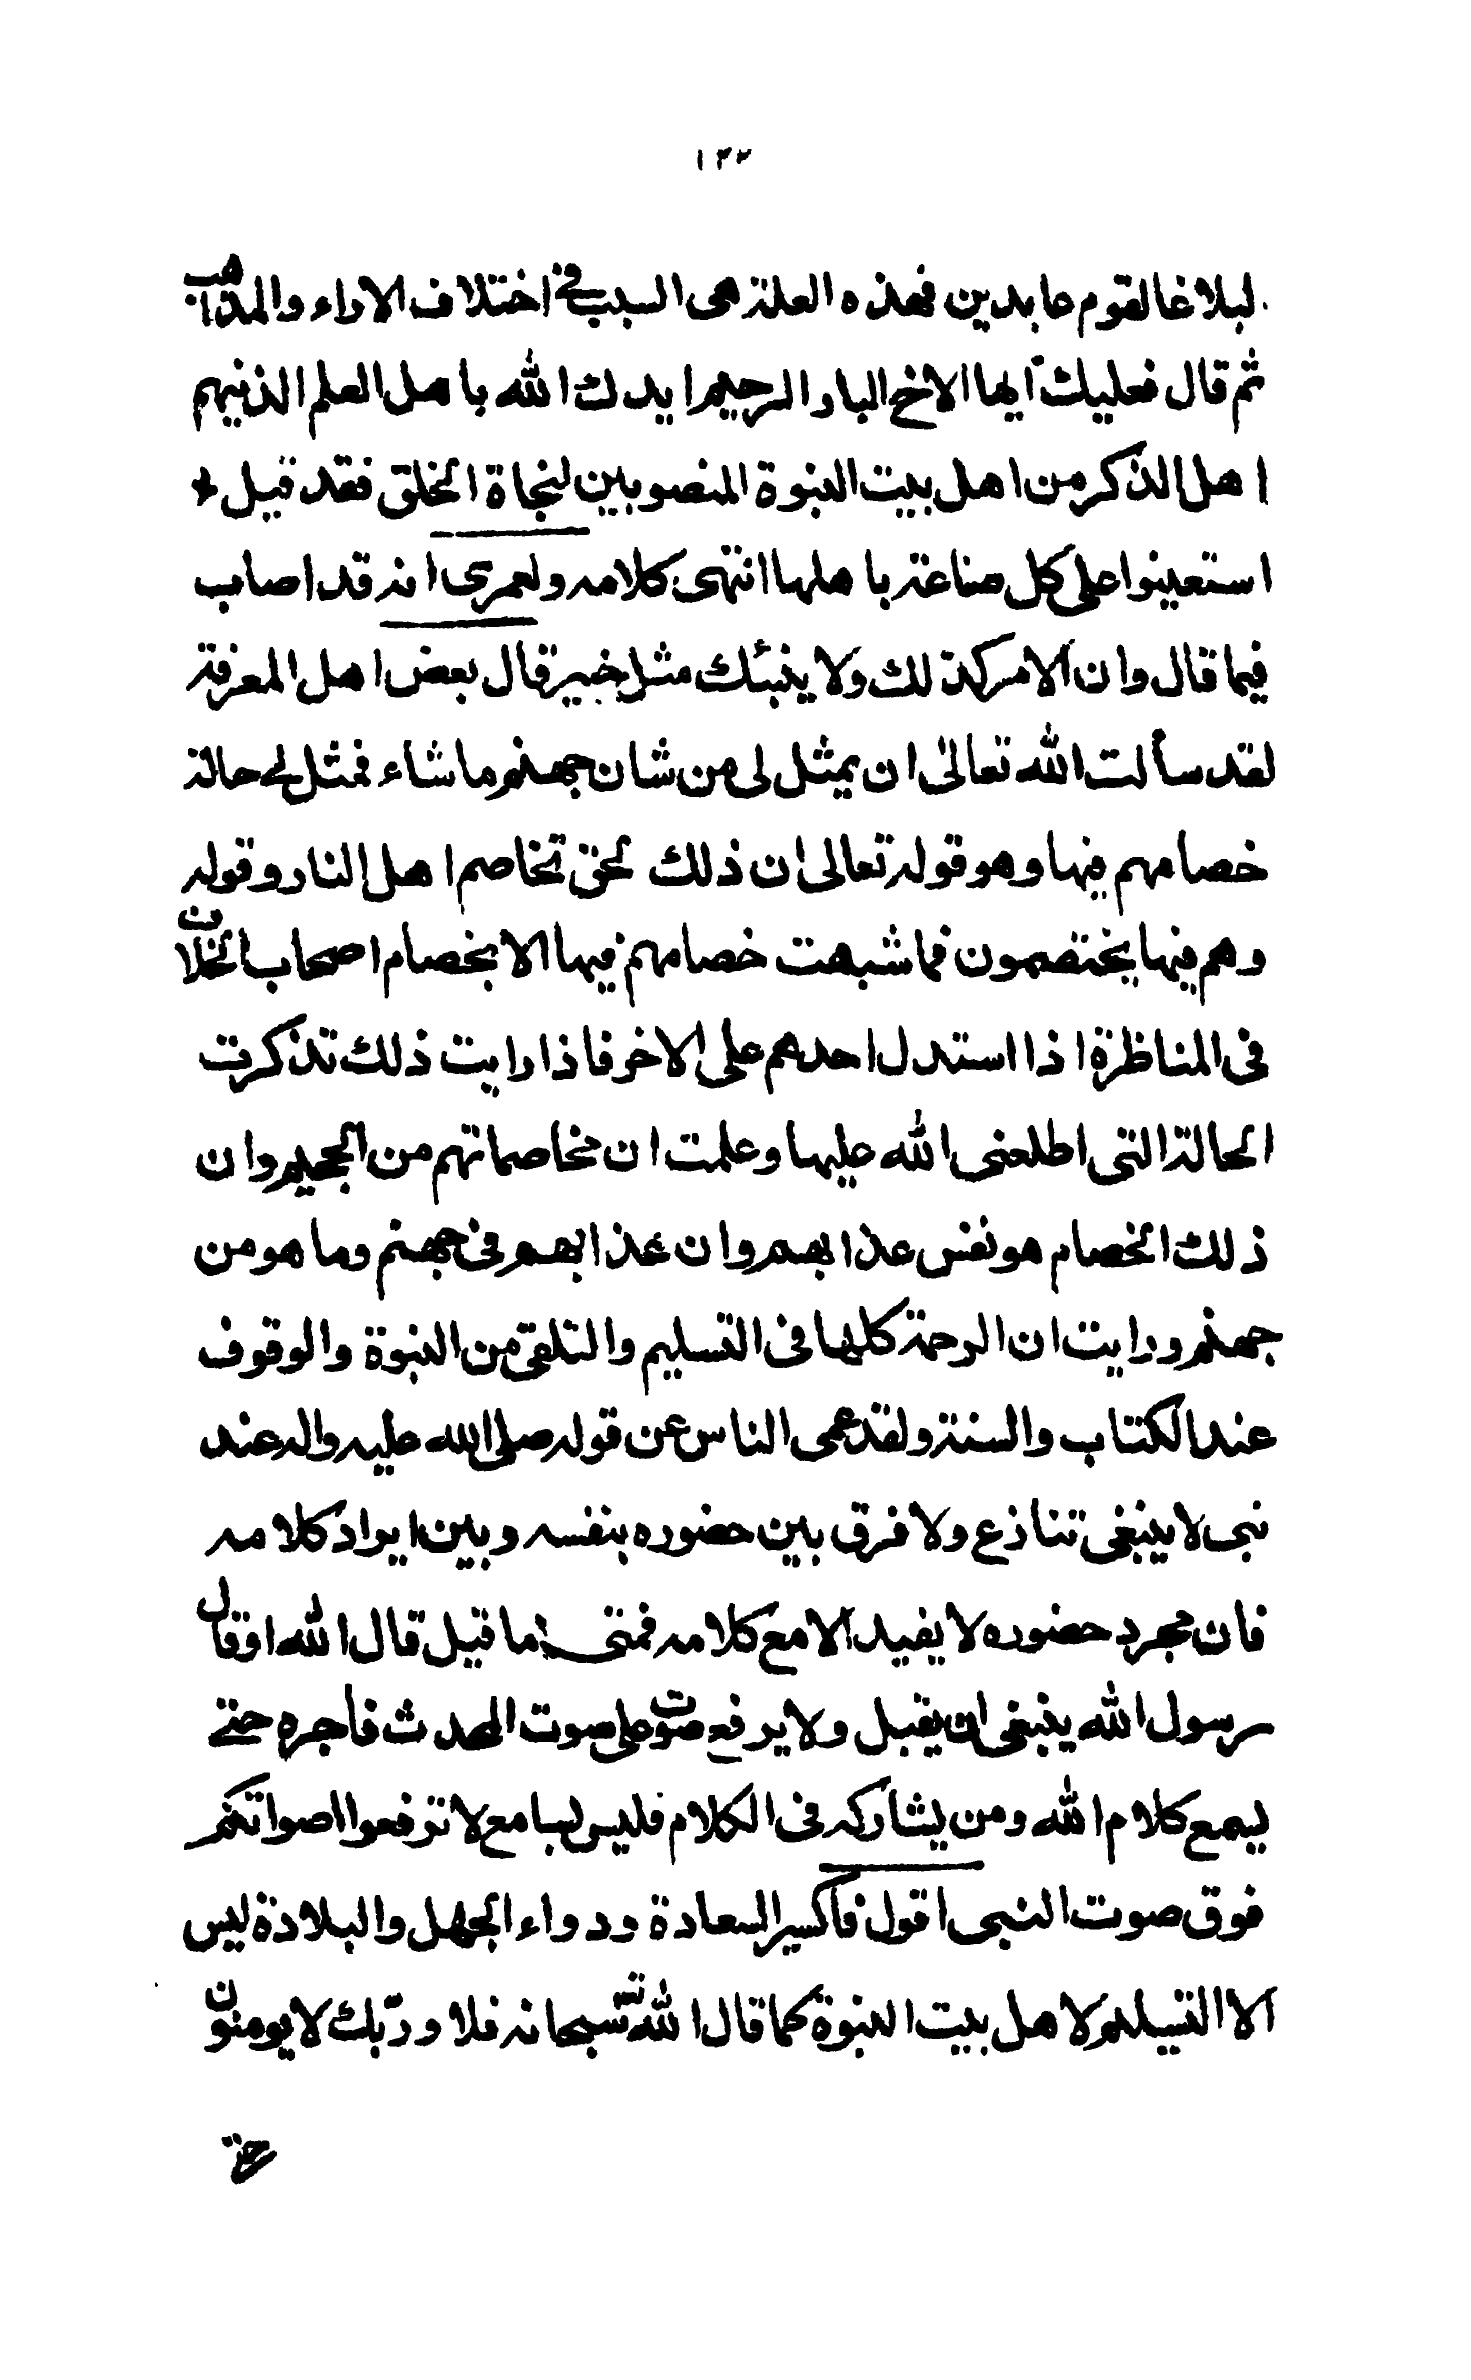 ١٣٢
لبلاغا لقوم عابدين فهذه العلة هى السبب فى اختلاف الاراء والمذاهب
ثم قال فعليك ايها الاخ البار الرحيم ايدك الله باهل العلم الذينهم
اهل الذكر من اهل بيت النبوة المنصوبين لنجاة الخلق فقد قيل *
استعينوا على كل صناعة باهلها انتهى كلامه ولعمرى انه قد اصاب
فيما قال وان الامر كذلك ولا ينبئك مثل خبير قال بعض اهل المعرفة
لقد سألت الله تعالى ان يمثل لى من شان جهنم ما شاء فمثل لى حالة
خصامهم فيها وهو قوله تعالى ان ذلك لحق تخاصم اهل النار وقوله
وهم فيها يختصمون فما شبهت خصامهم فيها الا بخصام اصحاب الخلاف
فى المناظرة اذا استدل احدهم على الاخر فاذا رايت ذلك تذكرت
الحالة التى اطلعنى الله عليها وعلمت ان مخاصماتهم من الجحيم وان
ذلك الخصام هو نفس عذابهم وان عذابهم فى جهنم وما هو من
جهنم ورايت ان الرحمة كلها فى التسليم والتلقى من النبوة والوقوف
عند الكتاب والسنة ولقد عمى الناس عن قوله صلى الله عليه واله عند
نبى لا ينبغى تنازع ولا فرق بين حضوره بنفسه وبين ايراد كلامه
فان مجرد حضوره لا يفيد الا مع كلامه فمتى ما قيل قال الله او قال
رسول الله ينبغى ان يقبل ولا يرفع صوت على صوت المحدث فاجره حتى
يسمع كلام الله ومن يشاركه فى الكلام فليس بسامع لا ترفعوا اصواتكم
فوق صوت النبى اقول فاكسير السعادة ودواء الجهل والبلادة ليس
الا التسليم لاهل بيت النبوة كما قال الله سبحانه فلا وربّك لا يومنون
حتى